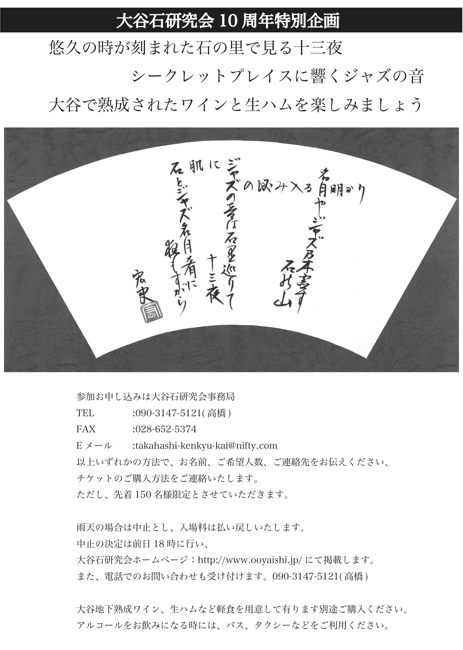 大谷石研究会 10 周年特別企画
悠久の時が刻まれた石の里で見る十三夜
シークレットプレイスに響くジャズの音
大谷で熟成されたワインと生ハムを楽しみましょう
名月や
石
山
ジャズの音は石里巡りて
十三夜
肌に
石とジャズ名月肴に
夜もすがら
宏史
参加お申し込みは大谷石研究会事務局
TEL :090-3147-5121( 高橋 )
FAX :028-652-5374
E メール :takahashi-kenkyu-kai@nifty.com
以上いずれかの方法で、お名前、ご希望人数、ご連絡先をお伝えください、
チケットのご購入方法をご連絡いたします。
ただし、先着 150 名様限定とさせていただきます。
雨天の場合は中止とし、入場料は払い戻しいたします。
中止の決定は前日 18 時に行い、
大谷石研究会ホームページ：http://www.ooyaishi.jp/ にて掲載します。
また、電話でのお問い合わせも受け付けます。090-3147-5121( 高橋 )
大谷地下熟成ワイン、生ハムなど軽食を用意して有ります別途ご購入ください。
アルコールをお飲みになる時には、バス、タクシーなどをご利用ください。